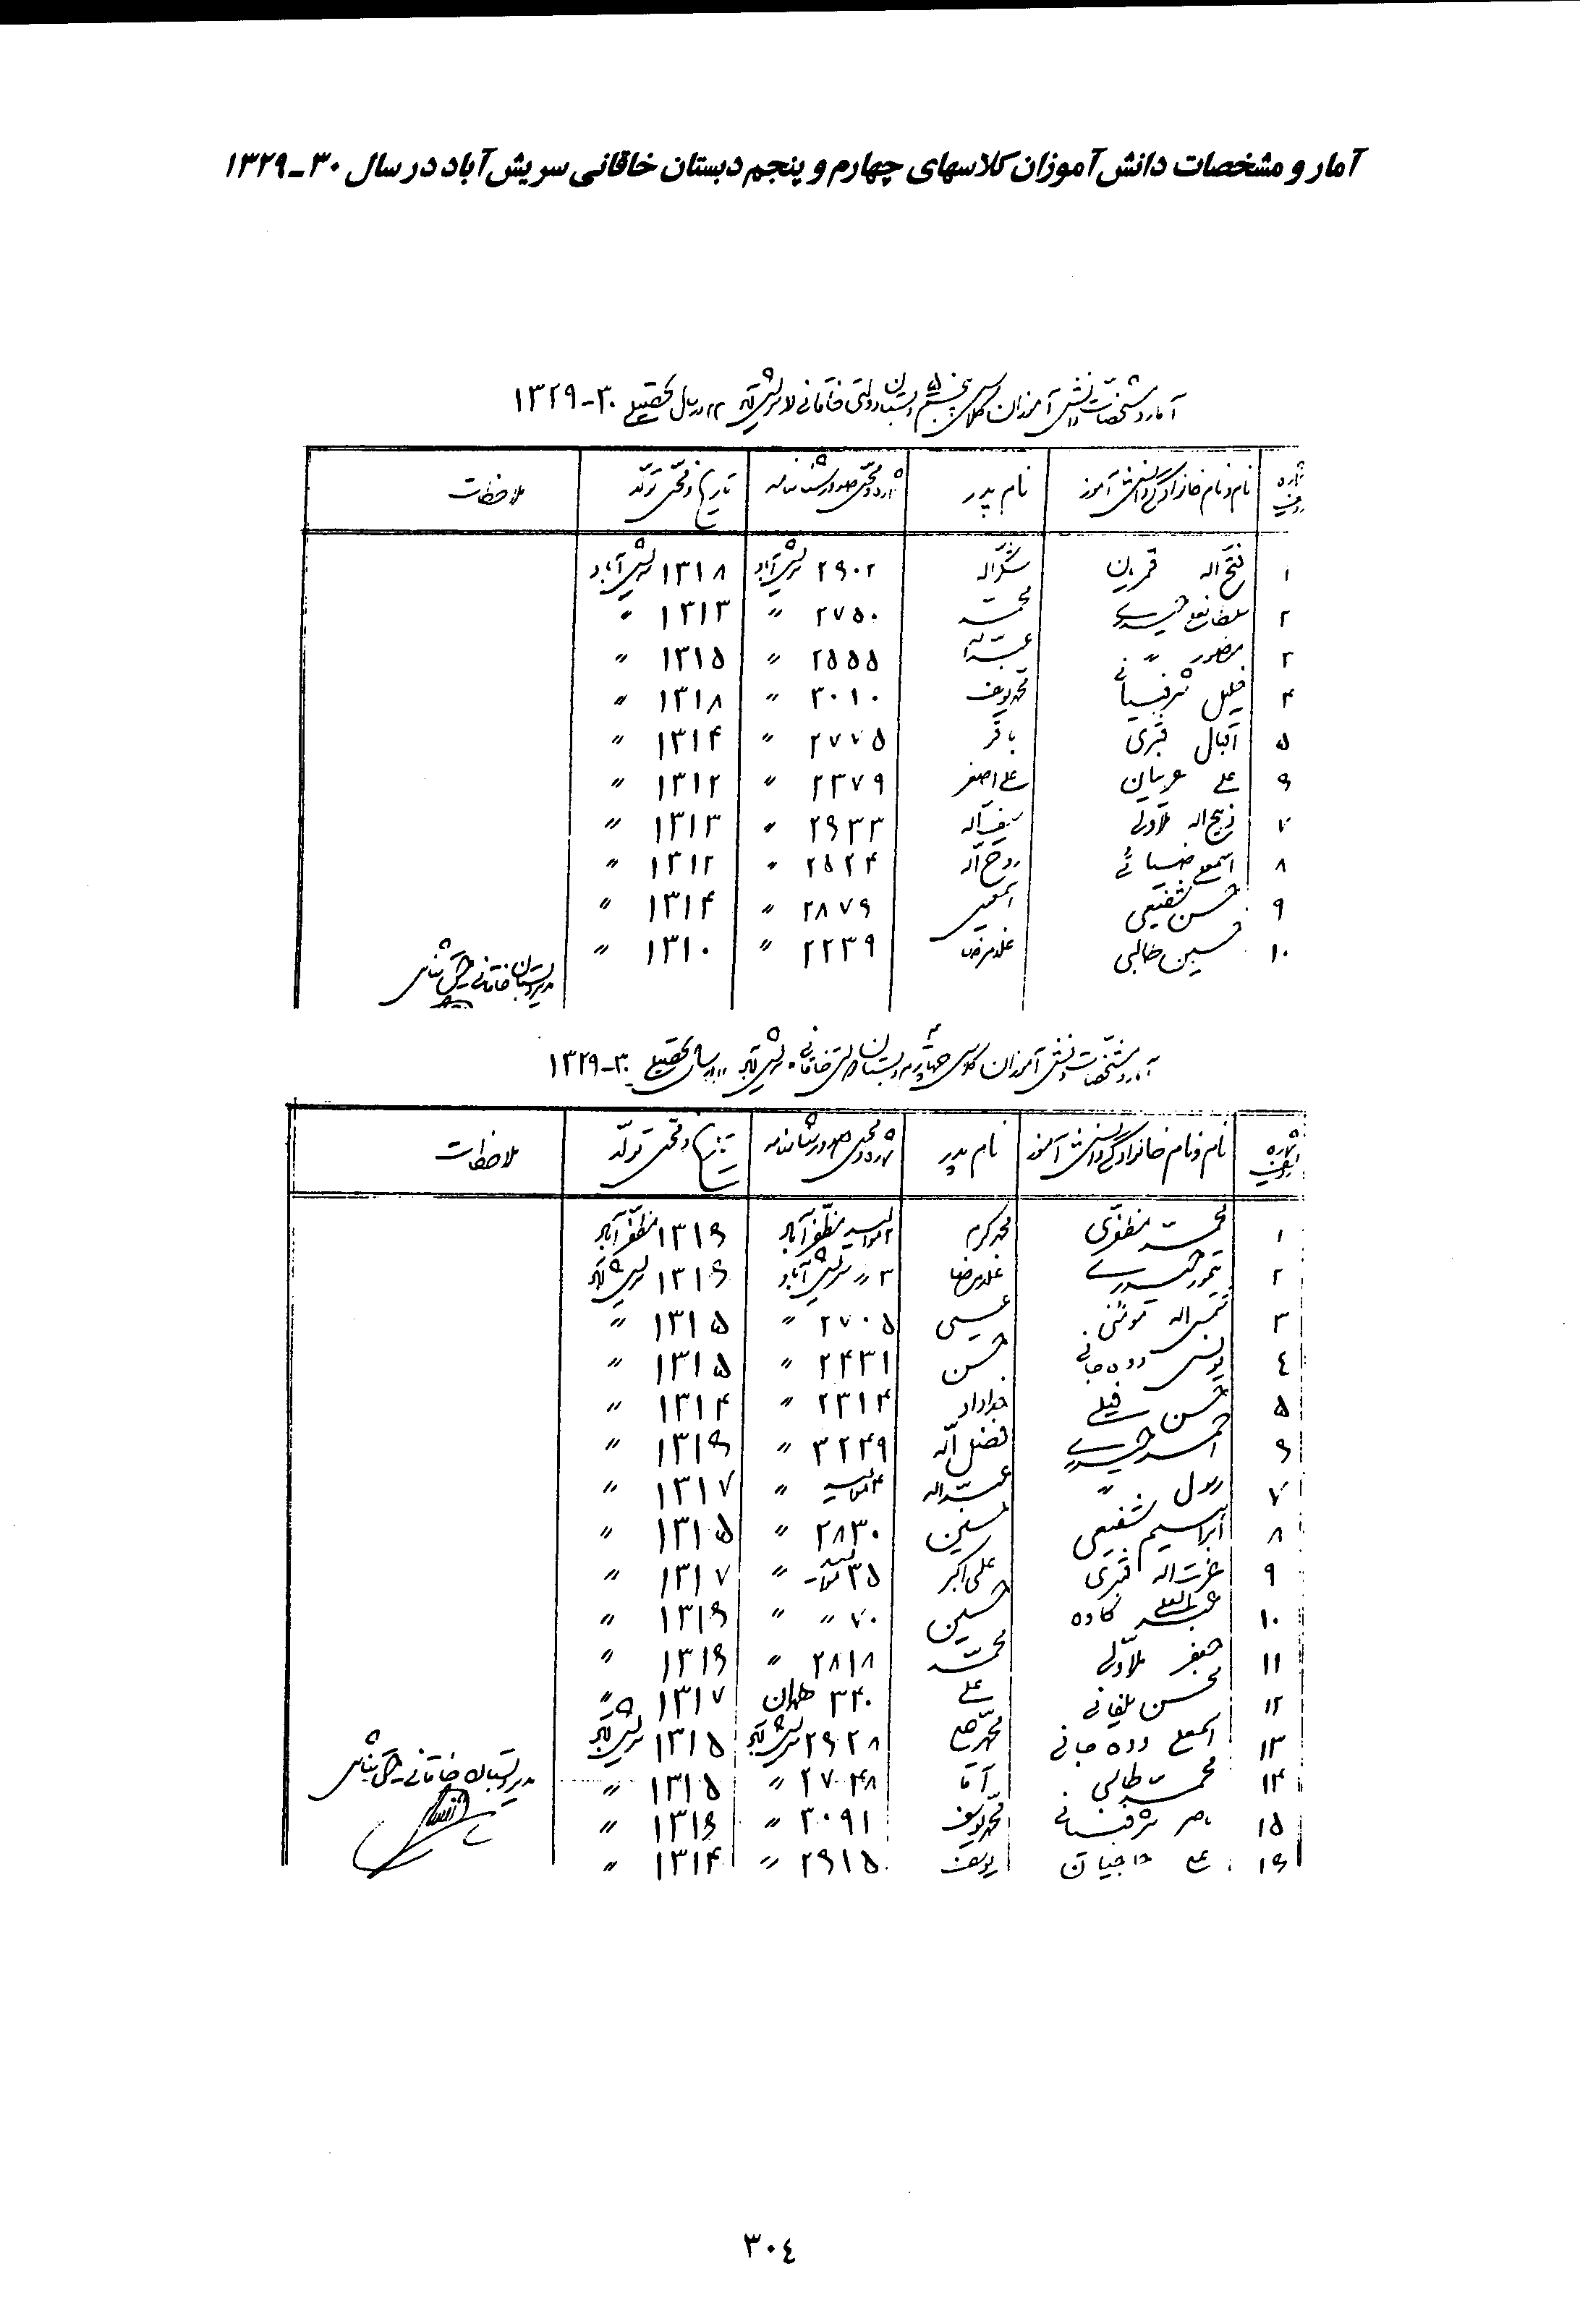 آمار و مشخصات دانش آموزان کلاسهای چهارم و پنجم دبستان خاقانی سریش آباد در سال ۳۰ـ۱۳۲۹
آمار و مشخصات دانش آموزان کلاس پنجم دبستان دولتی خاقانی سریش آباد در سال تحصیلی ۳۰-۱۳۲۹
شماره ردیف نام و نام خانوادگی دانش آموز نام پدر شماره و محل صدور شناسنامه تاریخ و محل تولد ملاحظات
۱ فتح اله قمریان شکراله ۲۹۰۲ سریش آباد ۱۳۱۸ سریش آباد
۲ حیدری محمد ۲۷۵۰ " ۱۳۱۳ "
۳ منصور " ۲۵۵۵ " ۱۳۱۵ "
۴ خلیل محمدیوسف ۳۰۱۰ " ۱۳۱۸ "
۵ اقبال قنبری باقر ۲۷۷۵ " ۱۳۱۴ "
۶ علی عربیان علی اصغر ۲۳۷۹ " ۱۳۱۲ "
۷ ذبیح اله ملاولی سیف اله ۲۹۳۳ " ۱۳۱۳ "
۸ اسمعیل ضیائی روح اله ۲۵۲۴ " ۱۳۱۲ "
۹ حسن شفیعی اسمعیل ۲۸۷۹ " ۱۳۱۴ "
۱۰ حسین طالبی غلامرضا ۲۲۳۹ " ۱۳۱۰ "
مدیر دبستان خاقانی
آمار و مشخصات دانش آموزان کلاس چهارم دبستان دولتی خاقانی سریش آباد در سال تحصیلی ۳۰-۱۳۲۹
شماره ردیف نام و نام خانوادگی دانش آموز نام پدر شماره و محل صدور شناسنامه تاریخ و محل تولد ملاحظات
۱ محمد مظفری محمدکرم مظفرآباد ۱۳۱۶ مظفرآباد
۲ تیمور حیدری غلامرضا ۳ " سریش آباد ۱۳۱۶ سریش آباد
۳ مومنی عیسی ۲۷۰۵ " ۱۳۱۵ "
٤ یونس دوده جانی حسن ۲۴۳۱ " ۱۳۱۵ "
۵ حسن فیلی خداداد ۲۳۱۴ " ۱۳۱۴ "
۶ احمد حیدری فضل اله ۳۲۴۹ " ۱۳۱۶ "
۷ رسول " عبداله " ۱۳۱۷ "
۸ ابراهیم شفیعی حسین ۲۸۳۰ " ۱۳۱۵ "
۹ عزت اله قنبری علی اکبر ۳۵ " ۱۳۱۷ "
۱۰ عبدالعلی کاوه حسین ۷۰ " " ۱۳۱۶ "
۱۱ جعفر ملاولی محمد ۲۸۱۸ " ۱۳۱۶ "
۱۲ محسن یلفانی علی ۳۴۰ همدان ۱۳۱۷ "
۱۳ اسمعیل دوده جانی ۲۹۲۸ سریش آباد ۱۳۱۵ سریش آباد
۱۴ محمد طالبی آقا ۲۷۴۸ " ۱۳۱۵ "
۱۵ ناصر محمدیوسف ۳۰۹۱ " ۱۳۱۶ "
۱۶ علی حاجیان یوسف ۲۹۱۵ " ۱۳۱۴ "
مدیر دبستان خاقانی
۳۰٤